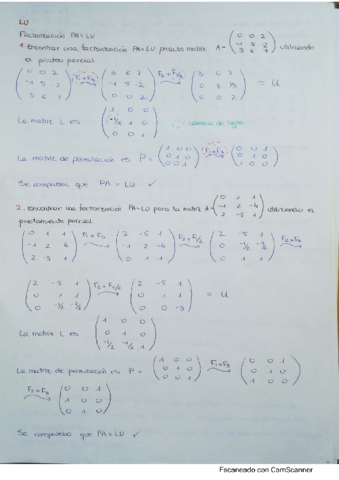 LU
Factorización PA=LU
1. Encontrar una factorización PA=LU para la matriz A= ( 0 0 2 / -1 5 2 / 3 6 7 ) utilizando
el pivoteo parcial
( 0 0 2 / -1 5 2 / 3 6 7 ) F1↔F3 ( 3 6 7 / -1 5 2 / 0 0 2 ) ( 3 6 7 / 0 7 / 0 0 2 ) = U
La matriz L es ( 1 0 0 / -1/3 1 0 / 0 0 1 ) cambio de signo
La matriz de permutación es P = ( 1 0 0 / 0 1 0 / 0 0 1 ) F1↔F3 ( 0 0 1 / 0 1 0 / 1 0 0 )
Se comprueba que PA = LU ✓
2. Encontrar una factorización PA=LU para la matriz A= ( 0 1 1 / -1 2 -4 / 2 -5 1 ) utilizando el
pivoteamiento parcial
( 0 1 1 / -1 2 -4 / 2 -5 1 ) F1↔F3 ( 2 -5 1 / -1 2 -4 / 0 1 1 ) F2+F1/2 ( 2 -5 1 / 0 -1/2 -7/2 / 0 1 1 ) F2↔F3
( 2 -5 1 / 0 1 1 / 0 -1/2 -7/2 ) F3+F2/2 ( 2 -5 1 / 0 1 1 / 0 0 -3 ) = U
La matriz L es ( 1 0 0 / 0 1 0 / -1/2 -1/2 1 )
La matriz de permutación es P = ( 1 0 0 / 0 1 0 / 0 0 1 ) F1↔F3 ( 0 0 1 / 0 1 0 / 1 0 0 )
F2↔F3 ( 0 0 1 / 1 0 0 / 0 1 0 )
Se comprueba que PA = LU ✓
Escaneado con CamScanner